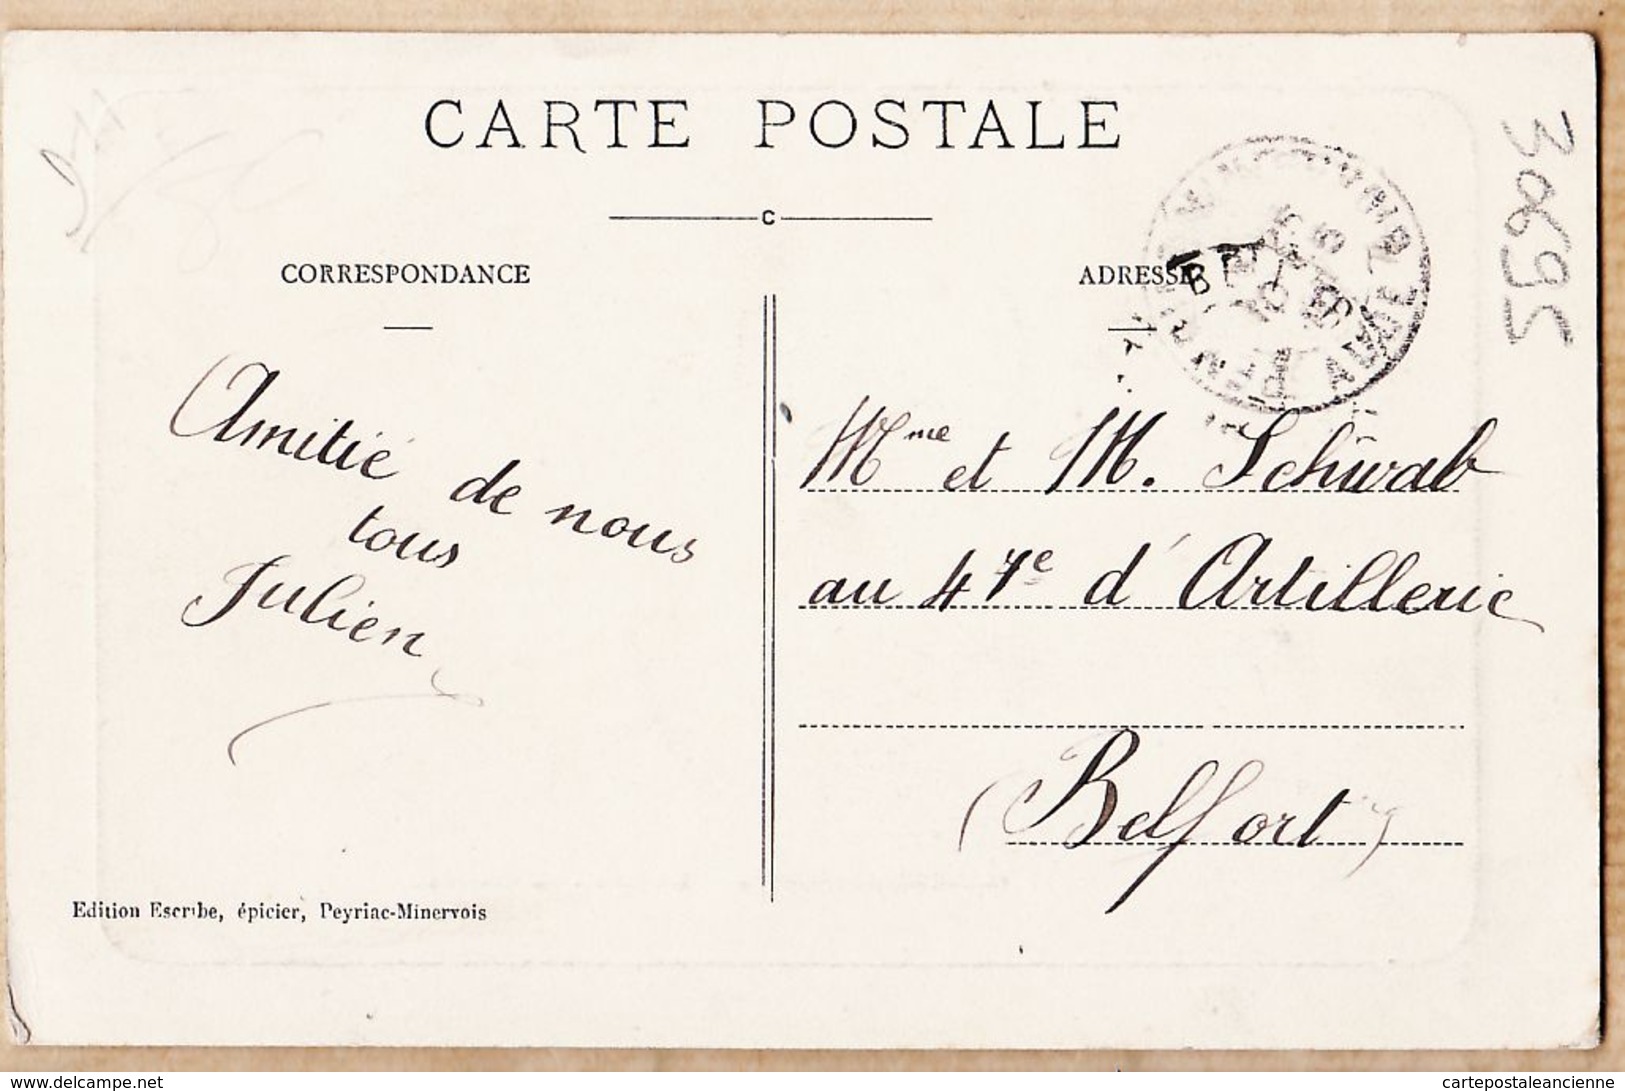 CARTE POSTALE
C
CORRESPONDANCE
ADRESSE
AUDE
3895
Amitié de nous
tous
Julien
Mme et M. Schwab
au 47e d'Artillerie
(Belfort)
Edition Escribe, épicier, Peyriac-Minervois
www.delcampe.net
cartepostaleancienne